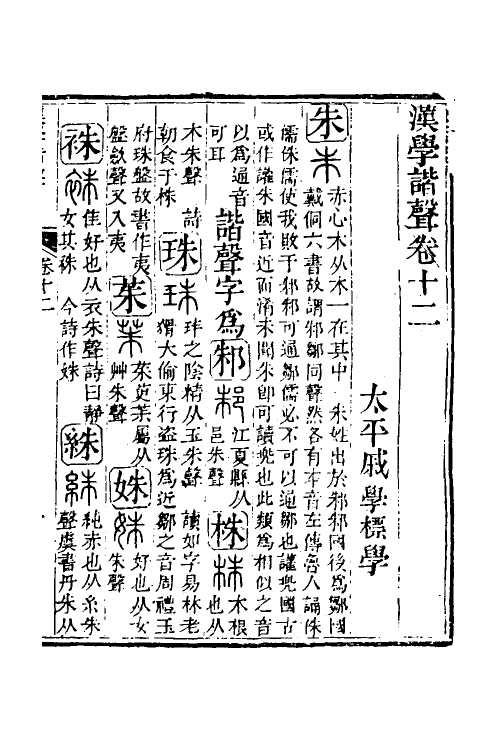 漢學諧聲卷十二
太平戚學標學
朱 赤心木从木一在其中 朱姓出於邾邾國後爲鄒國
戴侗六書故謂邾鄒同聲然各有本音左傳魯人誦侏
儒侏儒使我敗于邾邾可通鄒儒必不可以通鄒也讙兜國古
或作讙朱國音近而淆未聞朱即可讀兜也此類爲相似之音
以爲通音
可耳
諧聲字爲
邾 江夏縣从
邑朱聲
株 木根
也从
木朱聲 詩
朝食于株
珠 蚌之陰精从玉朱聲 讀如字易林老
獨大偷東行盜珠爲近鄒之音周禮玉
府珠盤故書作夷
盤敦聲又入夷
茱 茱萸茱屬从
艸朱聲
姝 好也从女
朱聲
袾 佳好也从衣朱聲詩曰靜
女其袾 今詩作姝
絑 純赤也从糸朱
聲虞書丹朱从
卷十二